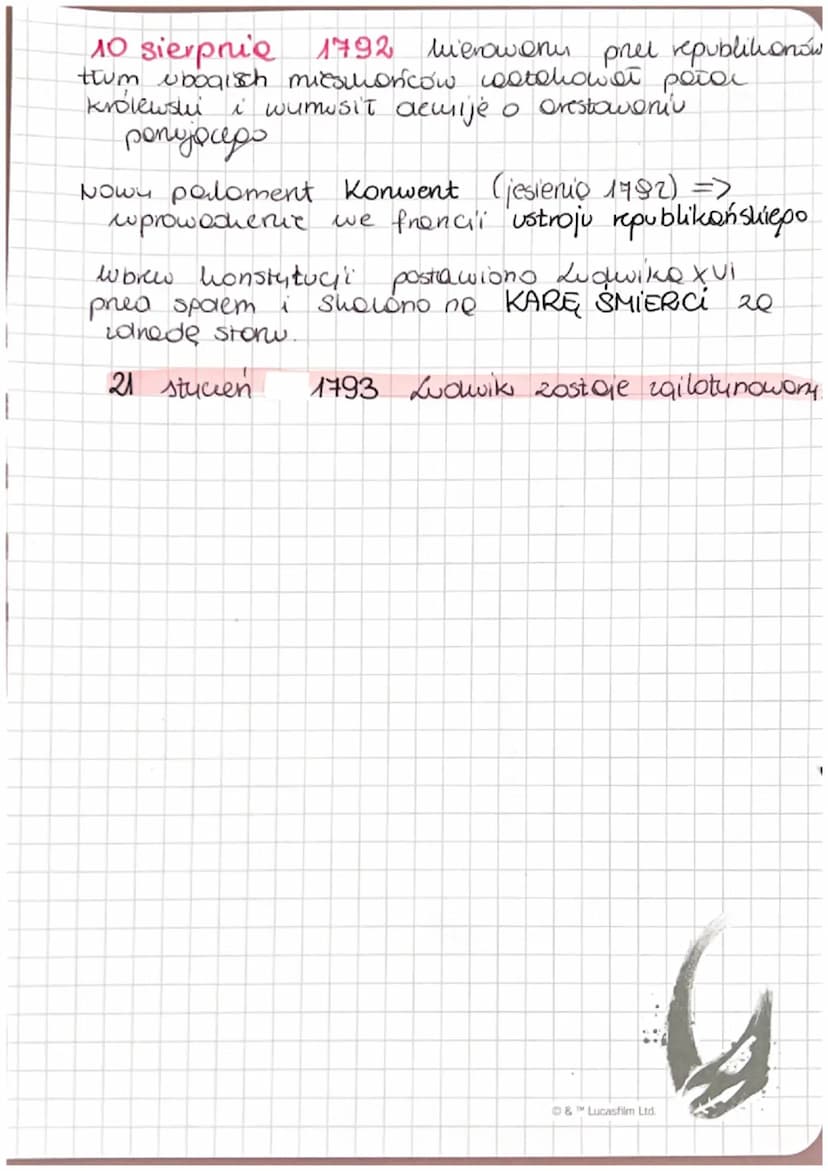 10 sierpnia 1792 kierowany przez republikanów
tłum ubogich mieszkańców zaatakował pałac
królewski i wymusił decyzję o aresztowaniu
panującego
Nowy parlament Konwent (jesienią 1792) =>
wprowadzenie we francji ustroju republikańskiego
wbrew konstytucji postawiono Ludwika XVI
przed sądem i skazano na KARĘ ŚMIERCI za
zdradę stanu.
21 styczeń 1793 Ludwik zostaje zgilotynowany
© & ™ Lucasfilm Ltd.